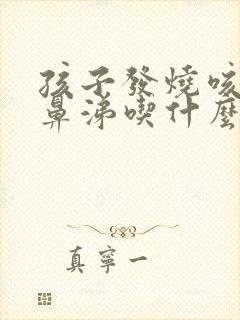 孩子發燒咳
鼻涕喫什麼
真寧一